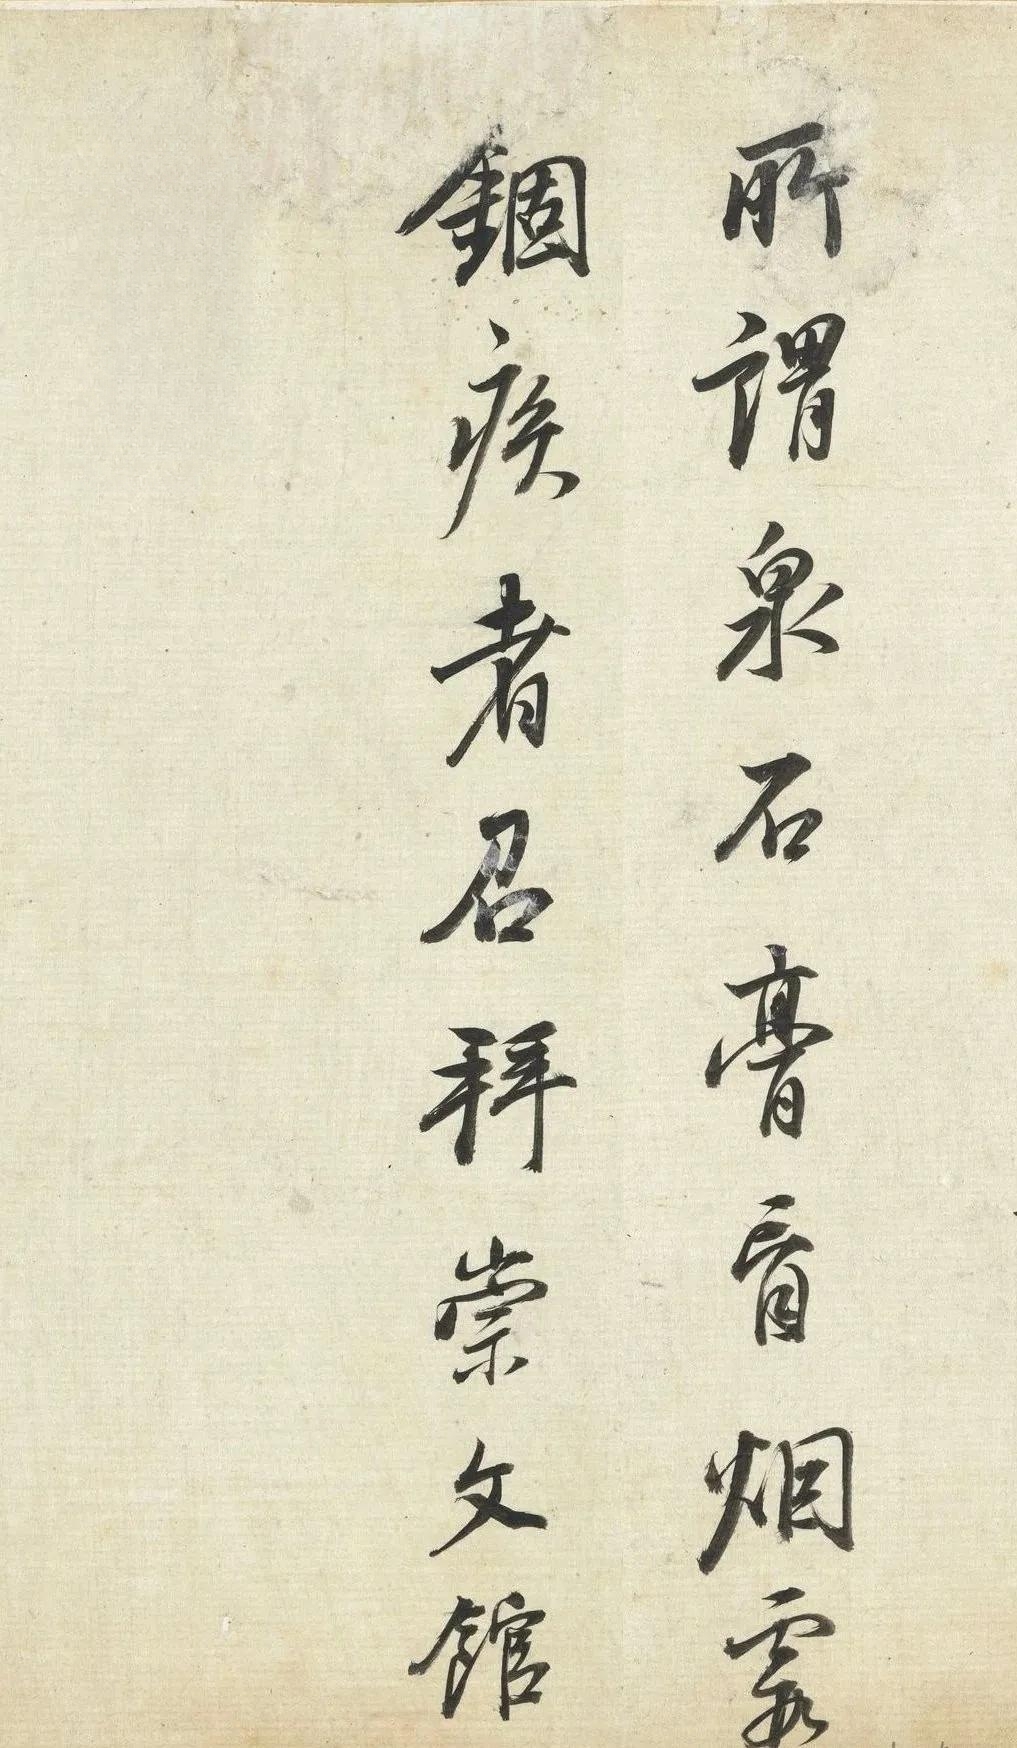 所謂泉石膏肓烟霞
錮疾者召拜崇文館